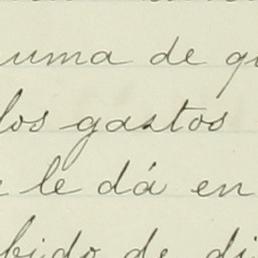 suma de qu
los gastos
e le dá en
bido de di